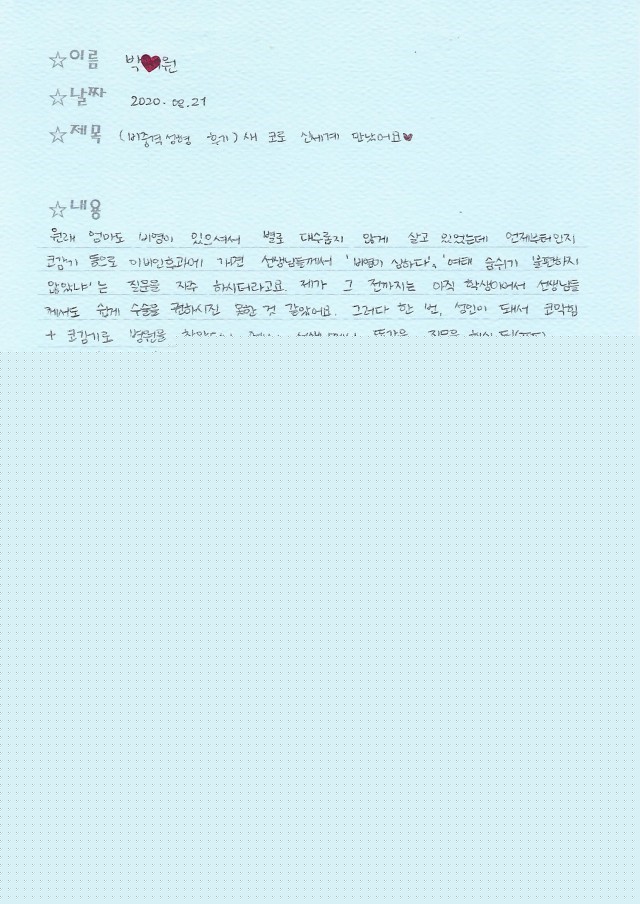 ☆이름 박♥원
☆날짜 2020. 02. 21
☆제목 (비중격성형 후기) 새 코로 신세계 만났어요♥
☆내용
원래 엄마도 비염이 있으셔서 별로 대수롭지 않게 살고 있었는데 언제부터인지
코감기 등으로 이비인후과에 가면 선생님들께서 '비염이 심하다', '여태 숨쉬기 불편하지
않았냐'는 질문을 자주 하시더라고요. 제가 그 전까지는 아직 학생이어서 선생님들
께서도 쉽게 수술을 권하시진 못한 것 같았어요. 그러다 한 번, 성인이 돼서 코막힘
+ 코감기로 병원을 똑같은 질문을